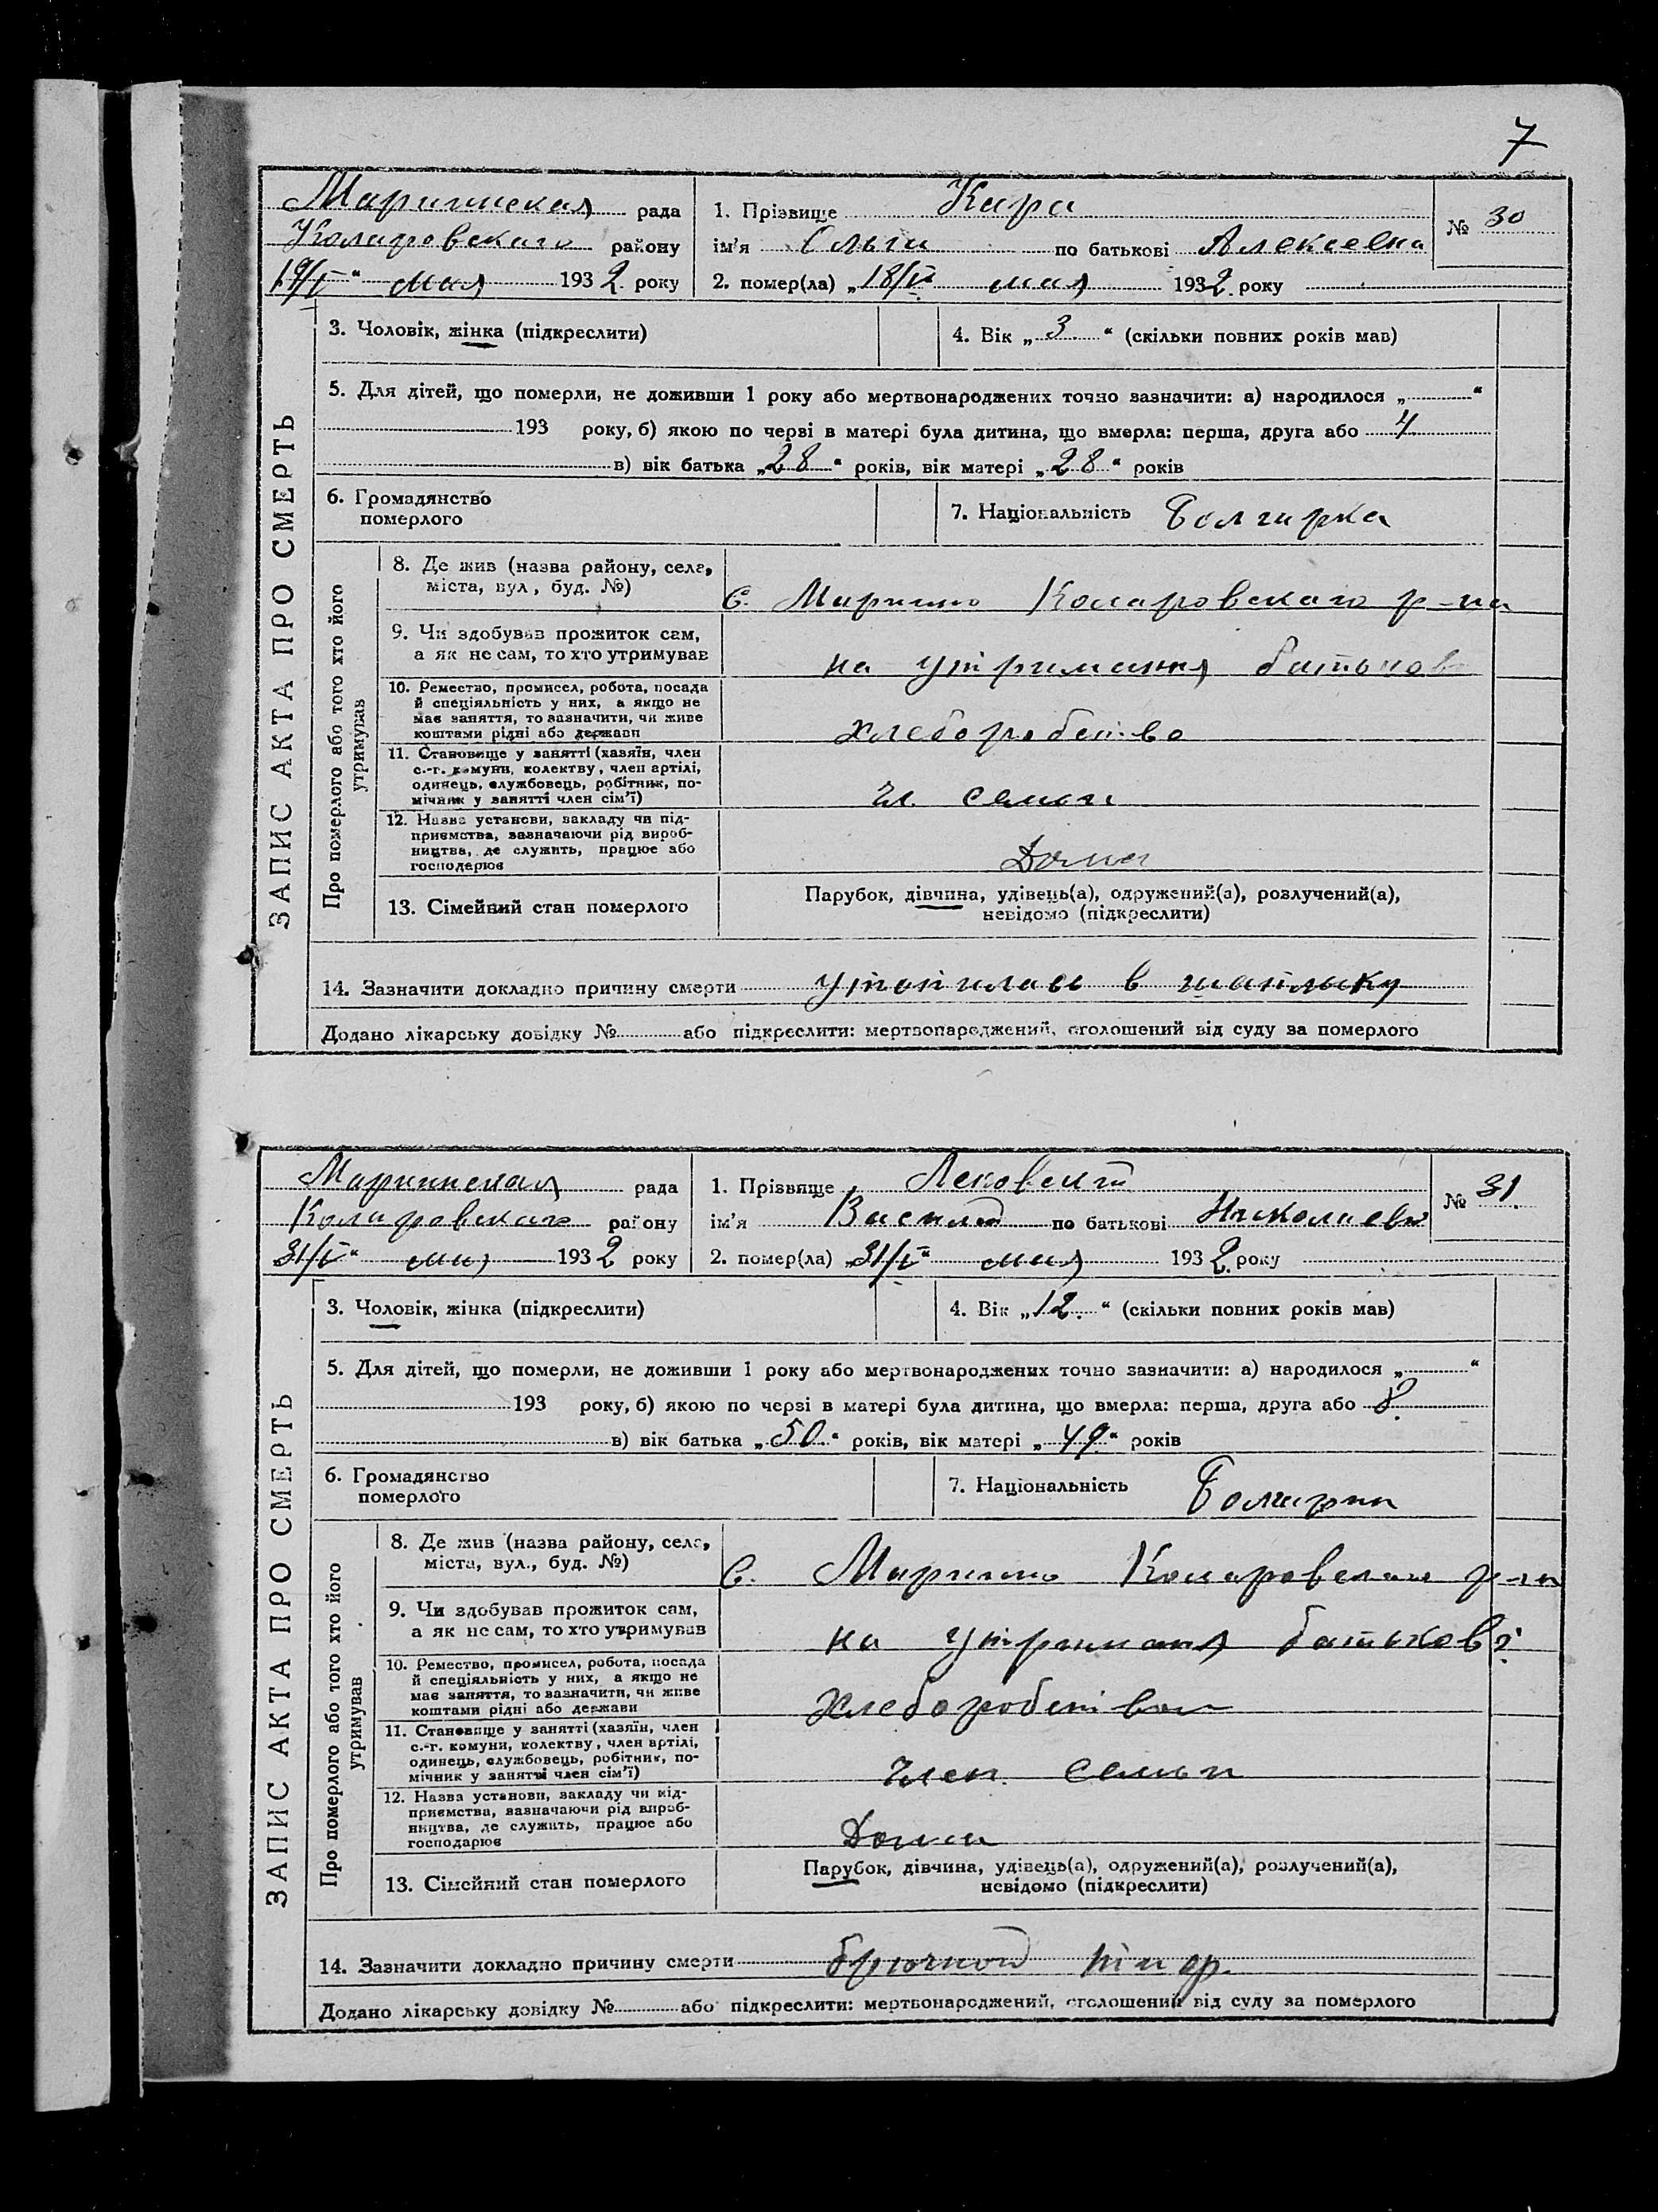 7
Мариинская рада
Коларовского району
19/V" мая 1932 року
1. Прізвище Кара
ім'я Ольга по батькові Алексеевна
2. помер(ла) „18/V мая 1932 року
№ 30
ЗАПИС АКТА ПРО СМЕРТЬ
3. Чоловік, жінка (підкреслити)
4. Вік „3“ (скільки повних років мав)
5. Для дітей, що померли, не доживши 1 року або мертвонароджених точно зазначити: а) народилося „ “
193 року, б) якою по черзі в матері була дитина, що вмерла: перша, друга або 4
в) вік батька „28“ років, вік матері „28“ років
6. Громадянство
померлого
7. Національність Болгарка
Про померлого або того хто його
утримував
8. Де жив (назва району, села,
міста, вул, буд. №)
С. Марино Коларовского р-на
9. Чи здобував прожиток сам,
а як не сам, то хто утримував
на утримания батьков
10. Ремество, промисел, робота, посада
й спеціяльність у них, а якщо не
має заняття, то зазначити, чи живе
коштами рідні або держави
хлеборобство
11. Становище у занятті (хазяїн, член
с.-г. комуни, колективу, член артілі,
одинець, службовець, робітник, по-
мічник у занятті член сім'ї)
чл. семьи
12. Назва установи, закладу чи під-
приємства, зазначаючи рід вироб-
ництва, де служить, працює або
господарює
Дома
13. Сімейний стан померлого
Парубок, дівчина, удівець(а), одружений(а), розлучений(а),
невідомо (підкреслити)
14. Зазначити докладно причину смерти утопилась в
Додано лікарську довідку № або підкреслити: мертвонароджений, оголошений від суду за померлого
Мариинская рада
Коларовского району
31/V" мая 1932 року
1. Прізвище
ім'я Василий по батькові Николаев
2. помер(ла) „31/V" мая 1932 року
№ 31.
ЗАПИС АКТА ПРО СМЕРТЬ
3. Чоловік, жінка (підкреслити)
4. Вік „12.“ (скільки повних років мав)
5. Для дітей, що померли, не доживши 1 року або мертвонароджених точно зазначити: а) народилося „ “
193 року, б) якою по черзі в матері була дитина, що вмерла: перша, друга або 8.
в) вік батька „50.“ років, вік матері „49.“ років
6. Громадянство
померлого
7. Національність Болгарин
Про померлого або того хто його
утримував
8. Де жив (назва району, села,
міста, вул., буд. №)
С. Марино Коларовского р-на
9. Чи здобував прожиток сам,
а як не сам, то хто утримував
на утримания батьков
10. Ремество, промисел, робота, посада
й спеціяльність у них, а якщо не
має заняття, то зазначити, чи живе
коштами рідні або держави
Хлеборобство
11. Становище у занятті (хазяїн, член
с.-г. комуни, колективу, член артілі,
одинець, службовець, робітник, по-
мічник у занятті член сім'ї)
Член. семьи
12. Назва установи, закладу чи під-
приємства, зазначаючи рід вироб-
ництва, де служить, працює або
господарює
Дома
13. Сімейний стан померлого
Парубок, дівчина, удівець(а), одружений(а), розлучений(а),
невідомо (підкреслити)
14. Зазначити докладно причину смерти брюшной тиф.
Додано лікарську довідку № або підкреслити: мертвонароджений, оголошений від суду за померлого